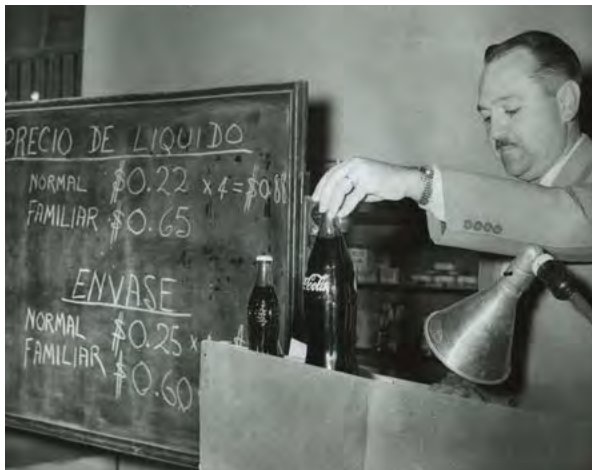 PRECIO DE LIQUIDO
NORMAL $0.22 x 4 = $0.88
FAMILIAR $0.65
ENVASE
NORMAL $0.25 x
FAMILIAR $0.60